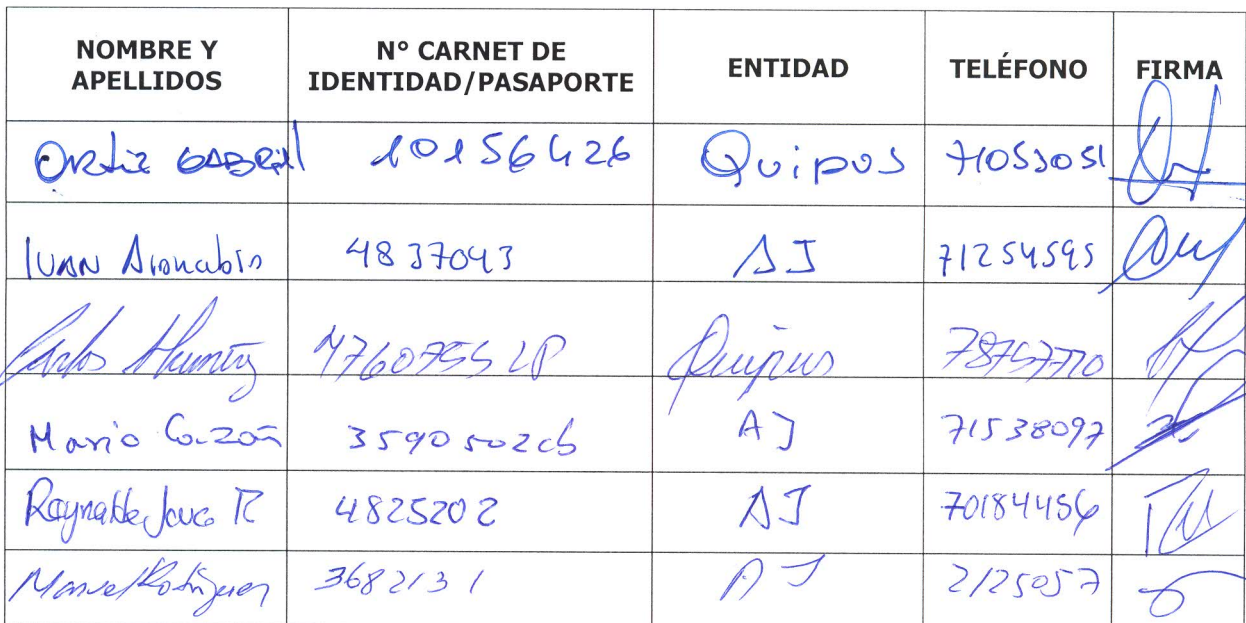 NOMBRE Y APELLIDOS N° CARNET DE IDENTIDAD/PASAPORTE ENTIDAD TELÉFONO FIRMA
Ortiz GABRiel 10156426 Quipus 71053051
IVAN 4837043 AJ 71254595
Carlos 4760755 LP Quipus 78757770
Mario 3590502cb AJ 71538097
4825202 AJ 70184456
Manuel Rodriguez 3682131 AJ 2125057